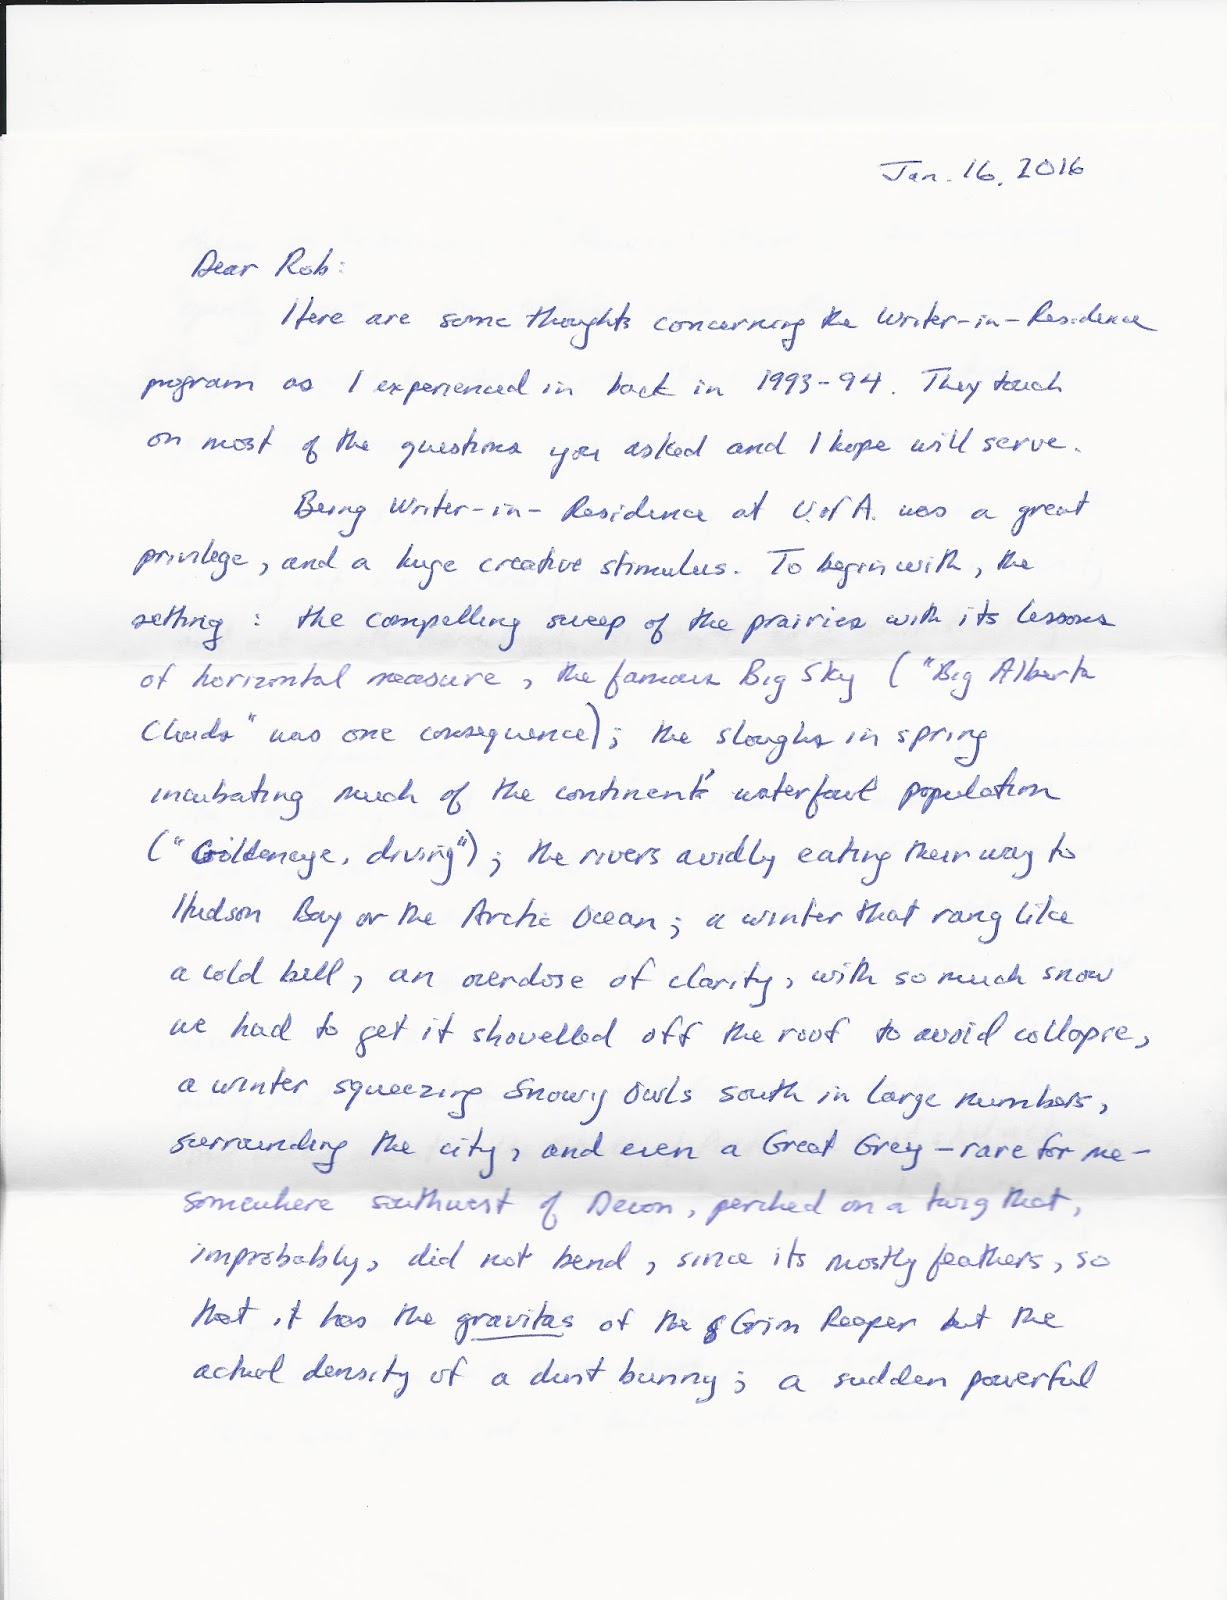 Jan. 16, 2016
Dear Rob:
Here are some thoughts concerning the Writer-in-Residence
program as I experienced in back in 1993-94. They touch
on most of the questions you asked and I hope will serve.
Being Writer-in-Residence at U. of A. was a great
privilege, and a huge creative stimulus. To begin with, the
setting: the compelling sweep of the prairies with its lessons
of horizontal measure, the famous Big Sky ("Big Alberta
Clouds" was one consequence); the sloughs in spring
incubating much of the continent's waterfowl population
("Goldeneye, diving"); the rivers avidly eating their way to
Hudson Bay or the Arctic Ocean; a winter that rang like
a cold bell, an overdose of clarity, with so much snow
we had to get it shovelled off the roof to avoid collapse,
a winter squeezing Snowy Owls south in large numbers,
surrounding the city, and even a Great Grey - rare for me -
somewhere southwest of Devon, perched on a twig that,
improbably, did not bend, since its mostly feathers, so
that it has the gravitas of the Grim Reaper but the
actual density of a dust bunny; a sudden powerful